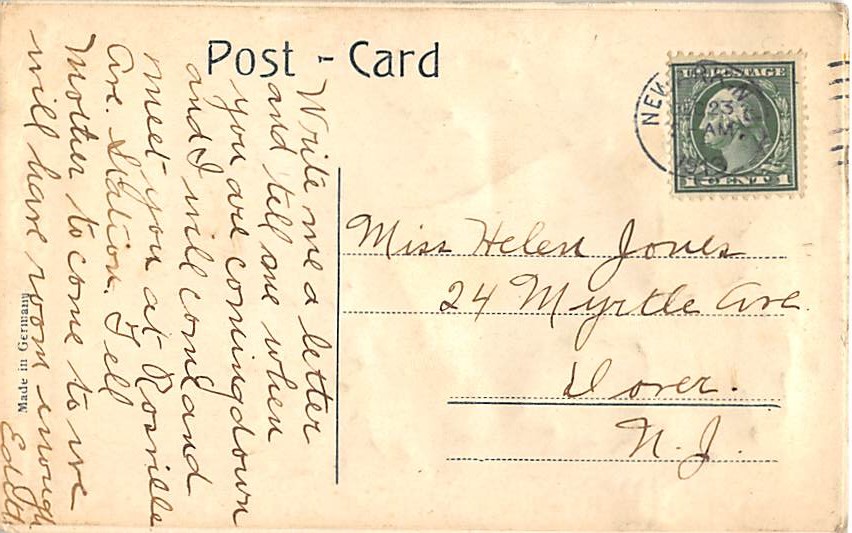 Post - Card
Write me a letter
and tell me when
you are coming down
and I will come and
meet you at Roseville
Ave. Station. Tell
Mother to come to we
will have room enough
Edith
Made in Germany
U.S. POSTAGE
1 CENT 1
NEWARK, N.J.
23
AM
Miss Helen Jones
24 Myrtle Ave
Dover.
N. J.